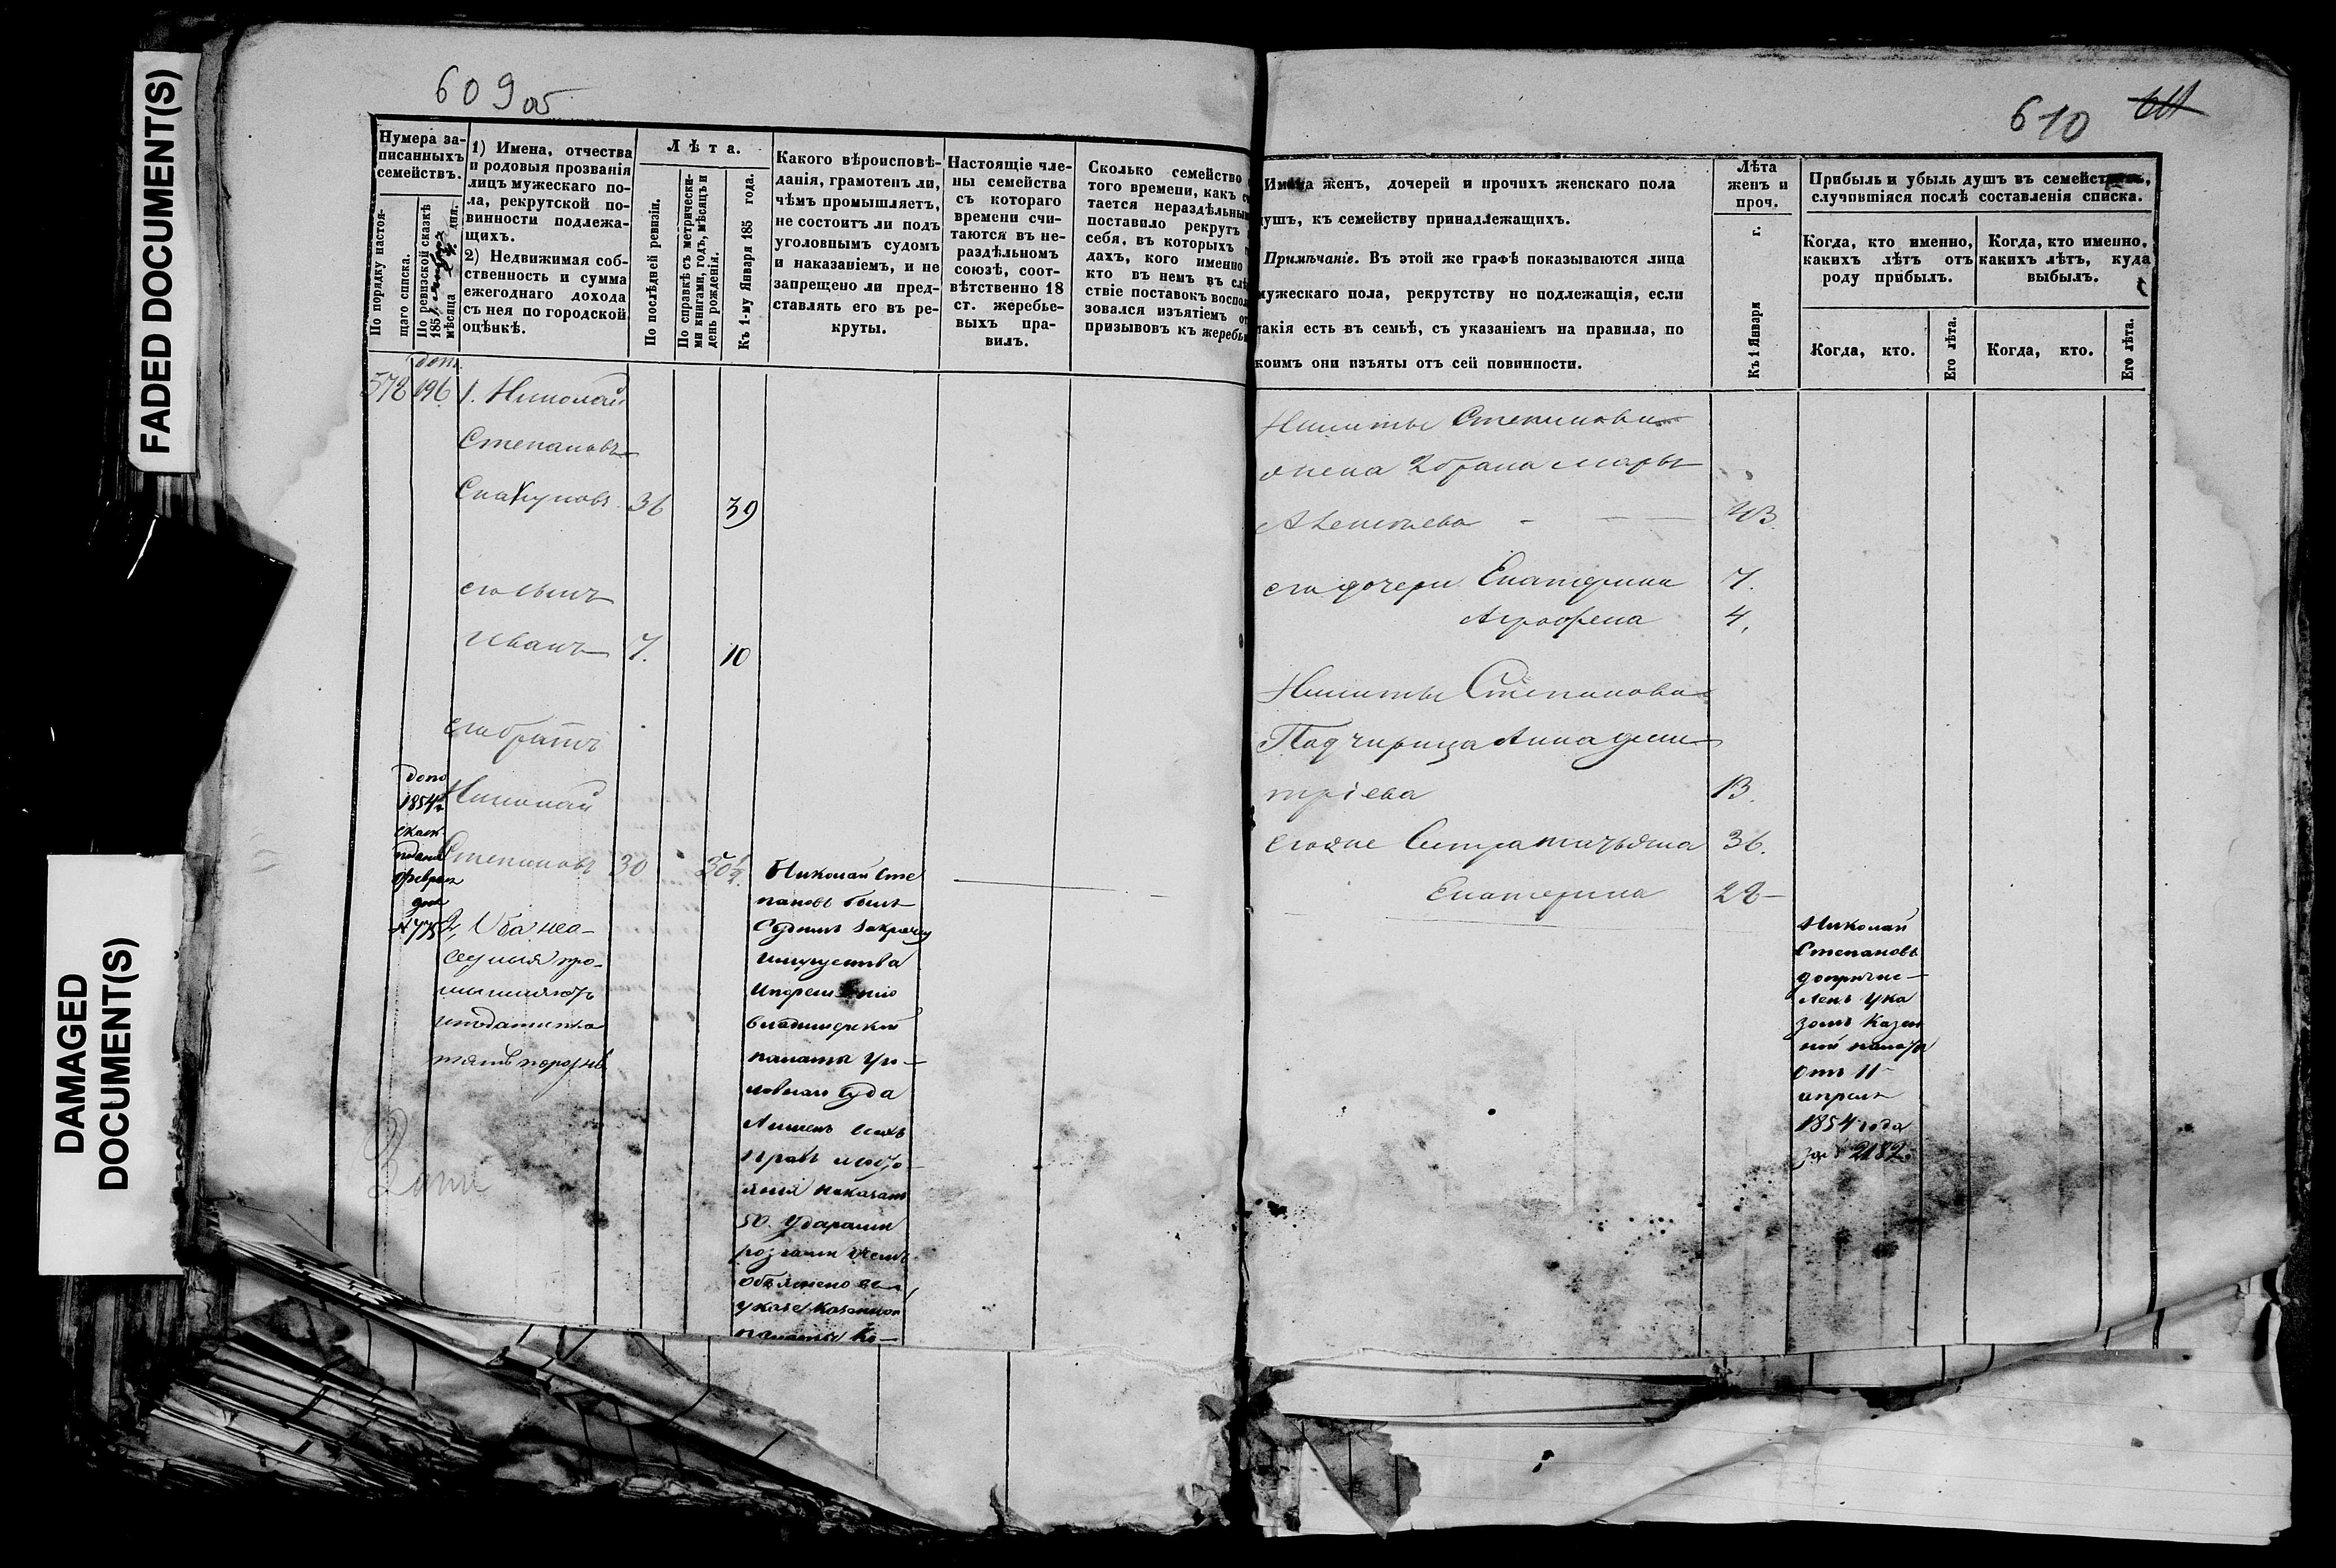 FADED DOCUMENT(S)
DAMAGED
DOCUMENT(S)
609 об
Нумера за-
писанныхъ
семействъ.
По порядку настоя-
щаго списка.
По ревизской сказкѣ
185
мѣсяца
дня.
1) Имена, отчества
и родовыя прозванія
лицъ мужескаго по-
ла, рекрутской по-
винности подлежа-
щихъ.
2) Недвижимая соб-
ственность и сумма
ежегоднаго дохода
съ нея по городской
оцѣнкѣ.
Лѣта.
По послѣдней ревизіи.
По справкѣ съ метрически-
ми книгами, годъ, мѣсяцъ и
день рожденія.
Къ 1-му Января 185 года.
Какого вѣроисповѣ-
данія, грамотенъ ли,
чѣмъ промышляетъ,
не состоитъ ли подъ
уголовнымъ судомъ
и наказаніемъ, и не
запрещено ли пред-
ставлять его въ ре-
круты.
Настоящіе чле-
ны семейства
съ котораго
времени счи-
таются въ не-
раздѣльномъ
союзѣ, соот-
вѣтственно 18
ст. жеребье-
выхъ пра-
вилъ.
Сколько семейство
того времени, какъ
тается нераздѣльны
поставило рекрутъ
себя, въ которыхъ
дахъ, кого именно
кто въ немъ въ слѣ
ствіе поставокъ воспол
зовался изъятіемъ от
призывовъ къ жеребь
доп.
578 196 1. Николай
Степановъ
36 39
его сынъ
Иванъ 7. 10
его братъ
допо
1854 г.
Николай
Степановъ 30 30½
Февраля
дня
№ 775
2, Оба
порознь
Николай Сте
пановъ былъ
Судимъ
имущества
владимерской
палаты Уго-
ловнаго Суда
Лишенъ всехъ
правъ состо
янія наказанъ
50. ударами
розгами о чемъ
объяснено въ
указе Казенной
палаты
610 611
Имена женъ, дочерей и прочихъ женскаго пола
душъ, къ семейству принадлежащихъ.
Примѣчаніе. Въ этой же графѣ показываются лица
мужескаго пола, рекрутству не подлежащія, если
такія есть въ семьѣ, съ указаніемъ на правила, по
коимъ они изъяты отъ сей повинности.
Лѣта
женъ и
проч.
Къ 1 Января г.
Прибыль и убыль душъ въ семействѣ,
случившіяся послѣ составленія списка.
Когда, кто именно,
какихъ лѣтъ отъ
роду прибылъ.
Когда, кто именно,
какихъ лѣтъ, куда
выбылъ.
Когда, кто.
Его лѣта.
Когда, кто.
Его лѣта.
Никиты Степанова
жена 2го брака Марья
43.
его дочери Екатерина 7.
Аграфена 4,
Никиты Степанова
Падчирица Анна Дми
тріева 13.
его же Сестра 36.
Екатерина 28
Николай
Степановъ
допричис-
ленъ Ука
зомъ Казен
ной палаты
отъ 11
апреля
1854 года
за № 2182.